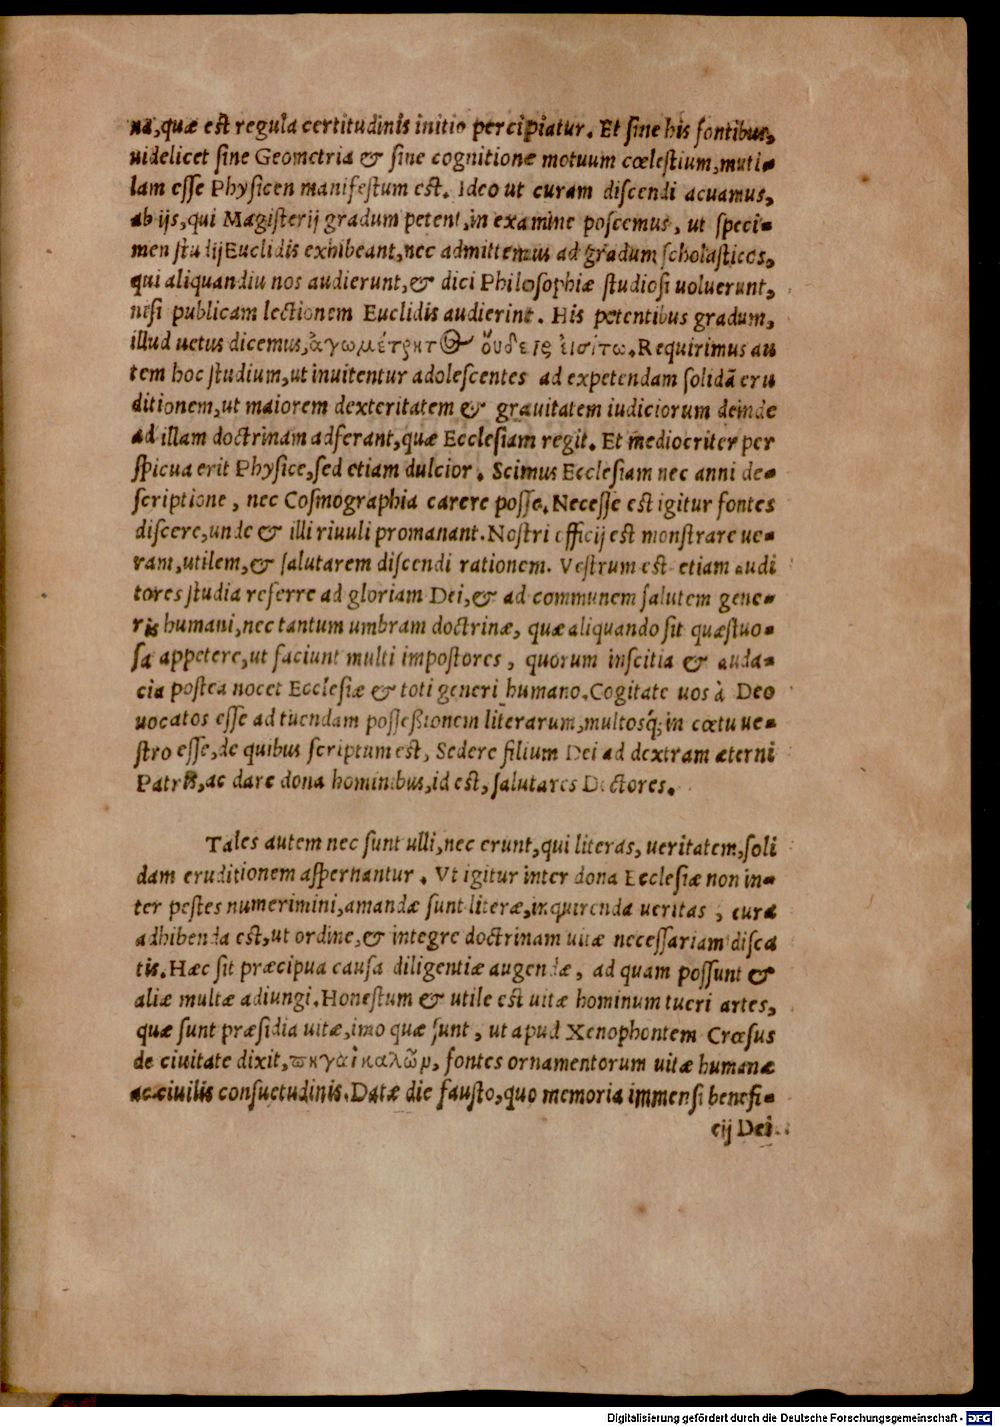 na, quæ est regula certitudinis initio percipiatur. Et sine his fontibus,
uidelicet sine Geometria & sine cognitione motuum cœlestium, muti-
lam esse Physicen manifestum est. Ideo ut curam discendi acuamus,
ab ijs, qui Magisterij gradum petent, in examine poscemus, ut speci-
men studij Euclidis exhibeant, nec admittemus ad gradum scholasticos,
qui aliquandiu nos audierunt, & dici Philosophiæ studiosi uoluerunt,
nisi publicam lectionem Euclidis audierint. His petentibus gradum,
illud uetus dicemus, ἀγωμέτρητος οὐδεὶς εἰσίτω. Requirimus au
tem hoc studium, ut inuitentur adolescentes ad expetendam solidã eru
ditionem, ut maiorem dexteritatem & grauitatem iudiciorum deinde
ad illam doctrinam adferant, quæ Ecclesiam regit. Et mediocriter per
spicua erit Physice, sed etiam dulcior. Scimus Ecclesiam nec anni de-
scriptione, nec Cosmographia carere posse. Necesse est igitur fontes
discere, unde & illi riuuli promanant. Nostri officij est monstrare ue-
ram, utilem, & salutarem discendi rationem. Vestrum est etiam audi
tores studia referre ad gloriam Dei, & ad communem salutem gene-
ris humani, nec tantum umbram doctrinæ, quæ aliquando sit quæstuo-
sa appetere, ut faciunt multi impostores, quorum inscitia & auda-
cia postea nocet Ecclesiæ & toti generi humano. Cogitate uos à Deo
uocatos esse ad tuendam possessionem literarum, multosq; in cœtu ue-
stro esse, de quibus scriptum est, Sedere filium Dei ad dextram æterni
Patris, ac dare dona hominibus, id est, salutares Doctores.
Tales autem nec sunt ulli, nec erunt, qui literas, ueritatem, soli
dam eruditionem aspernantur. Vt igitur inter dona Ecclesiæ non in-
ter pestes numerimini, amandæ sunt literæ, inquirenda ueritas, cura
adhibenda est, ut ordine, & integre doctrinam uitæ necessariam disca
tis. Hæc sit præcipua causa diligentiæ augendæ, ad quam possunt &
aliæ multæ adiungi. Honestum & utile est uitæ hominum tueri artes,
quæ sunt præsidia uitæ, imo quæ sunt, ut apud Xenophontem Crœsus
de ciuitate dixit, πηγαὶ καλῶν, fontes ornamentorum uitæ humanæ
ac ciuilis consuetudinis. Datæ die fausto, quo memoria immensi benefi-
cij Dei
Digitalisierung gefördert durch die Deutsche Forschungsgemeinschaft - DFG